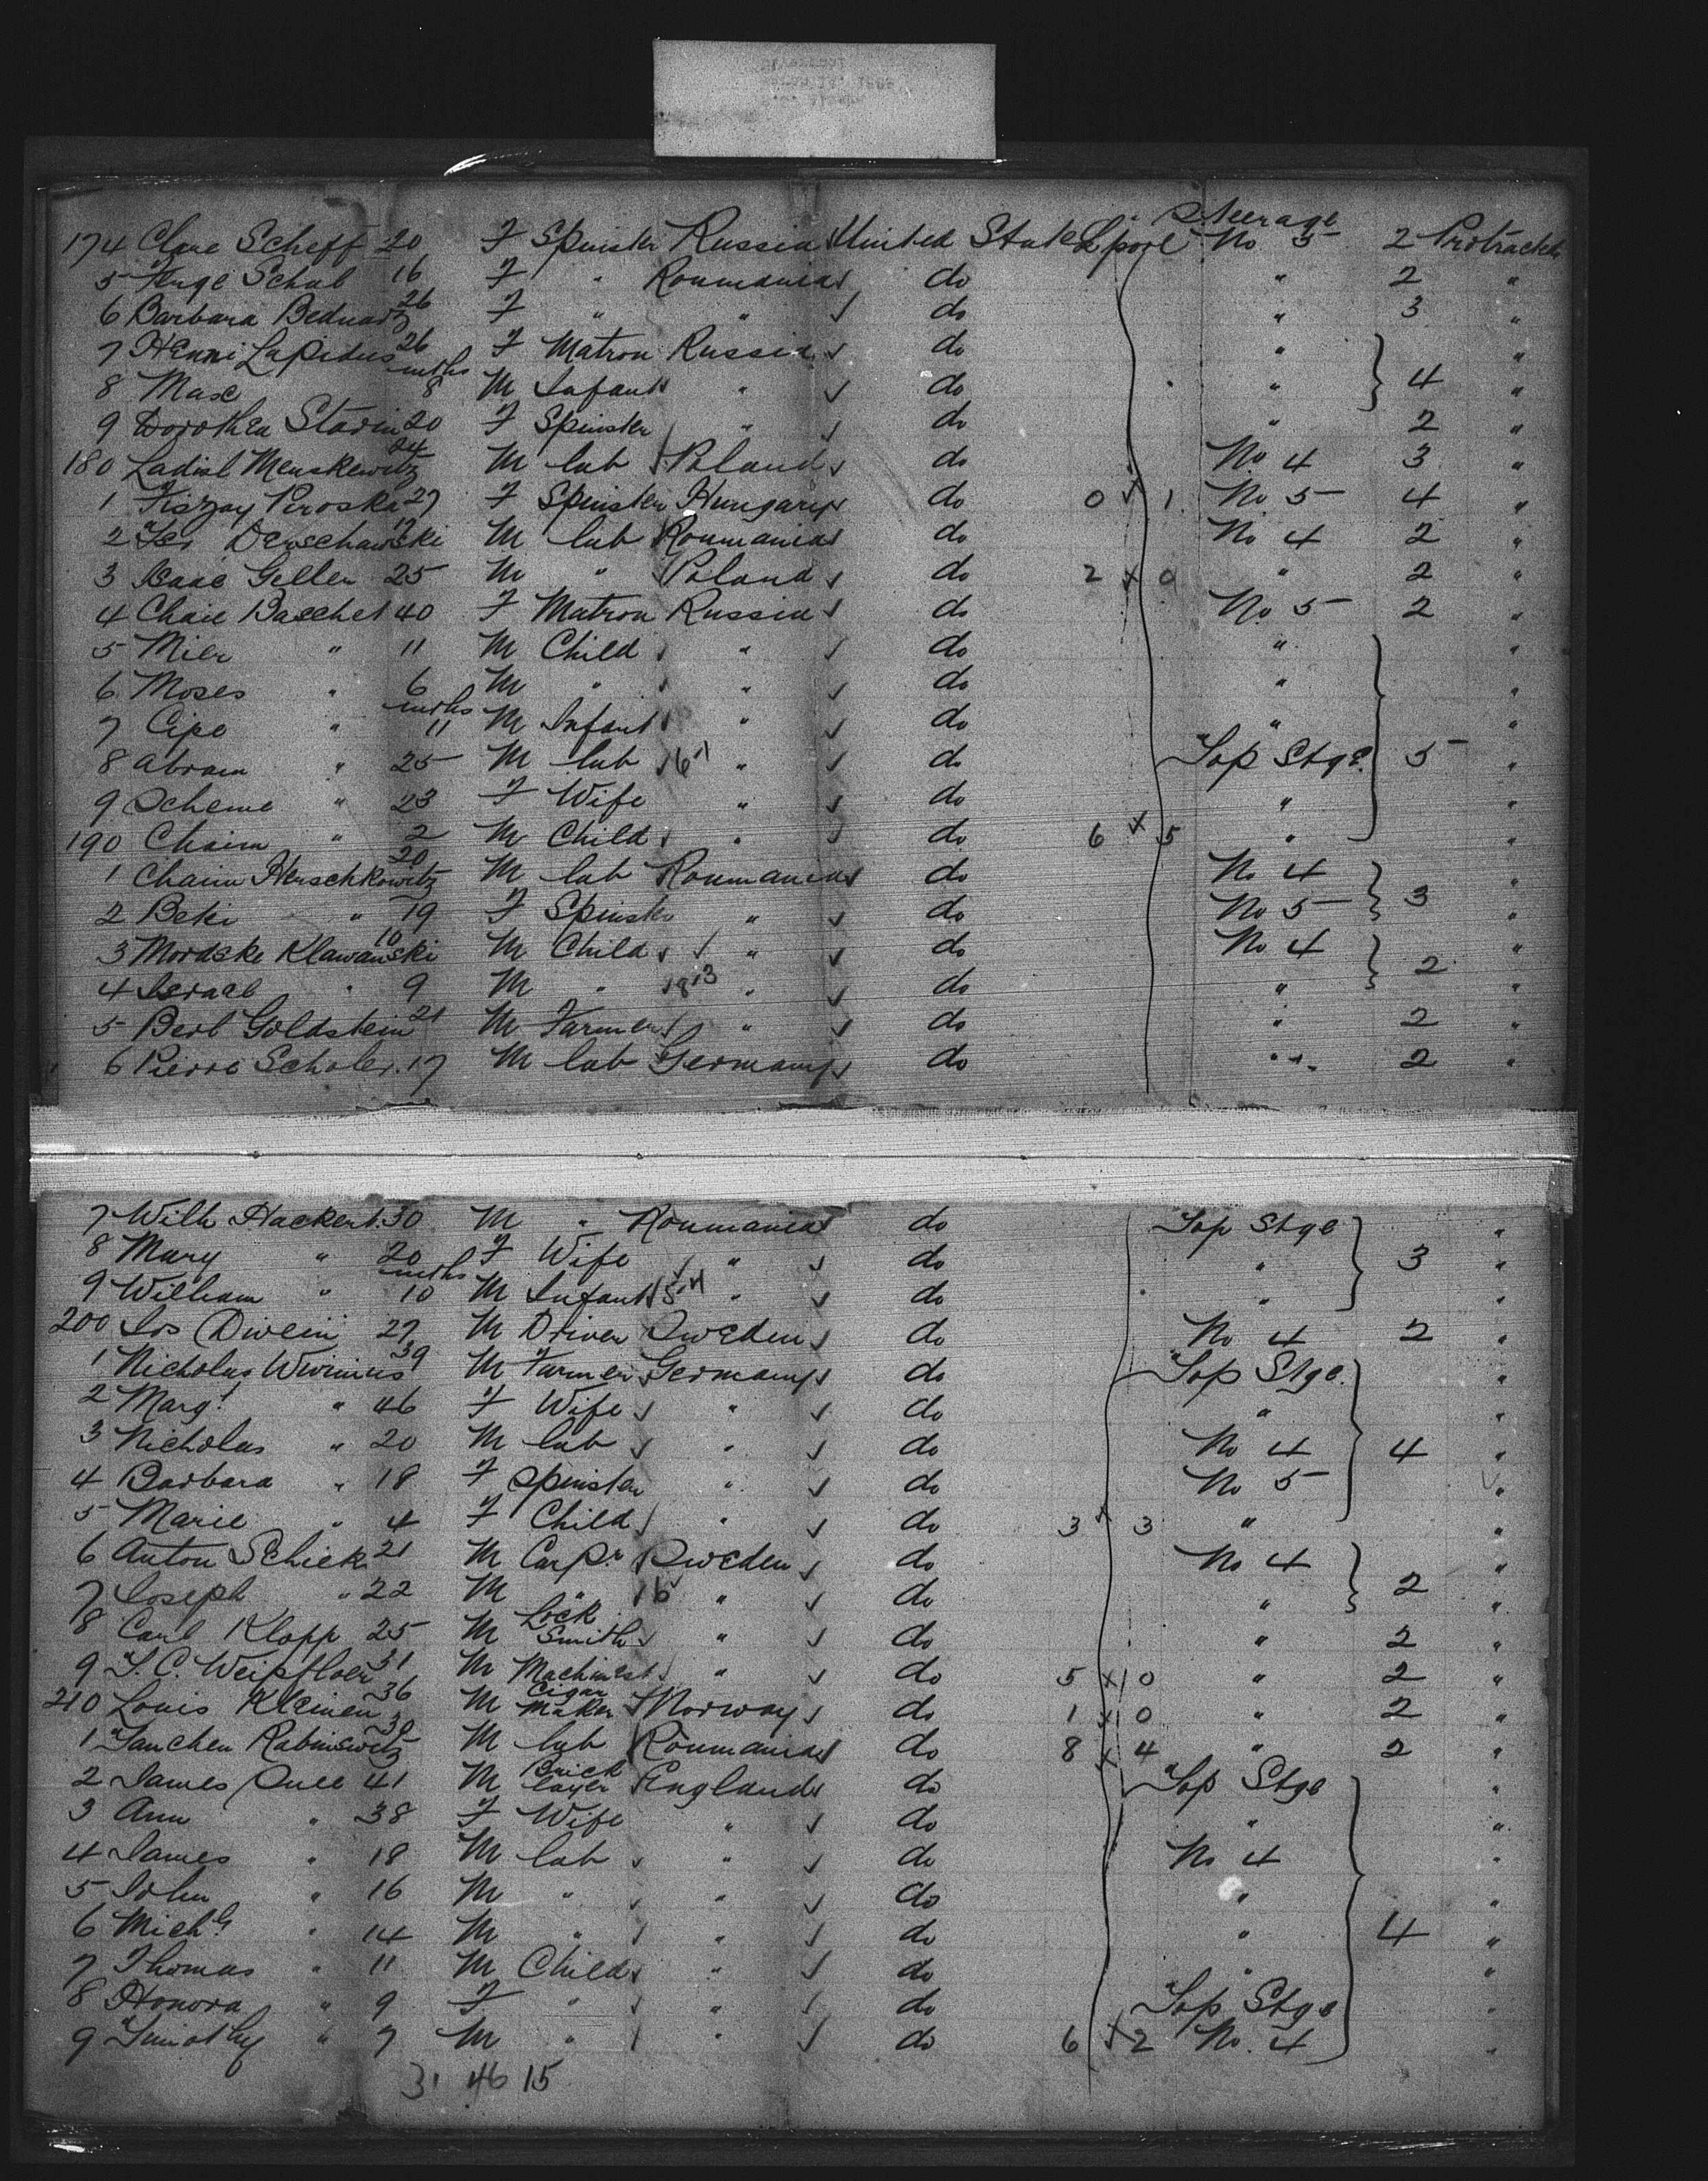 Steerage
174 Clare Scheff 20 F Spinster Russia United States Lpool No 5 2 Protracted
5 Schub 16 F " Roumania do " 2 "
6 Barbara Bednarz 26 F " " do " 3 "
7 Henni Lapidus 26 F Matron Russia do " "
8 Max mths 8 M Infant " do " 4 "
9 Dorothea Starin 20 F Spinster " do " 2 "
180 Ladisl Menskewitz 24 M lab Poland do No 4 3 "
1 Fiszay Piroska 27 F Spinster Hungary do 0 x 1 No 5 4 "
2 Derschawski M lab Roumania do No 4 2 "
3 Isaac Geller 25 M " Poland do 2 x 0 " 2 "
4 Chaie Baschel 40 F Matron Russia do No 5 2 "
5 Mier " 11 M Child " do " "
6 Moses " 6 M " " do " "
7 Cipe " mths 11 M Infant " do " "
8 Abram " 25 M lab 6-1 " do Top Stge 5 "
9 Scheme " 23 F Wife " do " "
190 Chaim " 2 M Child " do 6 x 5 " "
1 Chaim Herschkowitz 20 M lab Roumania do No 4 "
2 Beki " 19 F Spinster " do No 5 3 "
3 Mordske Klawanski 10 M Child " do No 4 "
4 Israel " 9 M " " do " 2 "
5 Berl Goldstein 21 M Farmer " do " 2 "
6 Pierre Scholer 17 M lab Germany do " 2 "
7 Wilh Hackert 30 M " Roumania do Top Stge "
8 Mary " 20 F Wife " do " 3 "
9 William " mths 10 M Infant " do " "
200 Jos Divein 27 M Driver Sweden do No 4 2 "
1 Nicholas Wirinius 39 M Farmer Germany do Top Stge "
2 Margt " 46 F Wife " do " "
3 Nicholas " 20 M lab " do No 4 4 "
4 Barbara " 18 F Spinster " do No 5 "
5 Marie " 4 F Child " do 3 x 3 " "
6 Anton Schiek 21 M Carpr Sweden do No 4 "
7 Joseph " 22 M " " do " 2 "
8 Carl Klopp 25 M Lock Smith " do " 2 "
9 31 M Machinest " do 5 x 0 " 2 "
210 Louis Kleinen 36 M Cigar Maker Norway do 1 x 0 " 2 "
1 Janchen Rabinowitz 30 M lab Roumania do 8 x 4 " 2 "
2 James 41 M Brick layer England do Top Stge "
3 Ann " 38 F Wife " do " "
4 James " 18 M lab " do No 4 "
5 John " 16 M " " do " "
6 Michl " 14 M " " do " 4 "
7 Thomas " 11 M Child " do " "
8 Honora " 9 F " " do Top Stge "
9 Timothy " 7 M " " do 6 x 2 No. 4 "
31 46 15